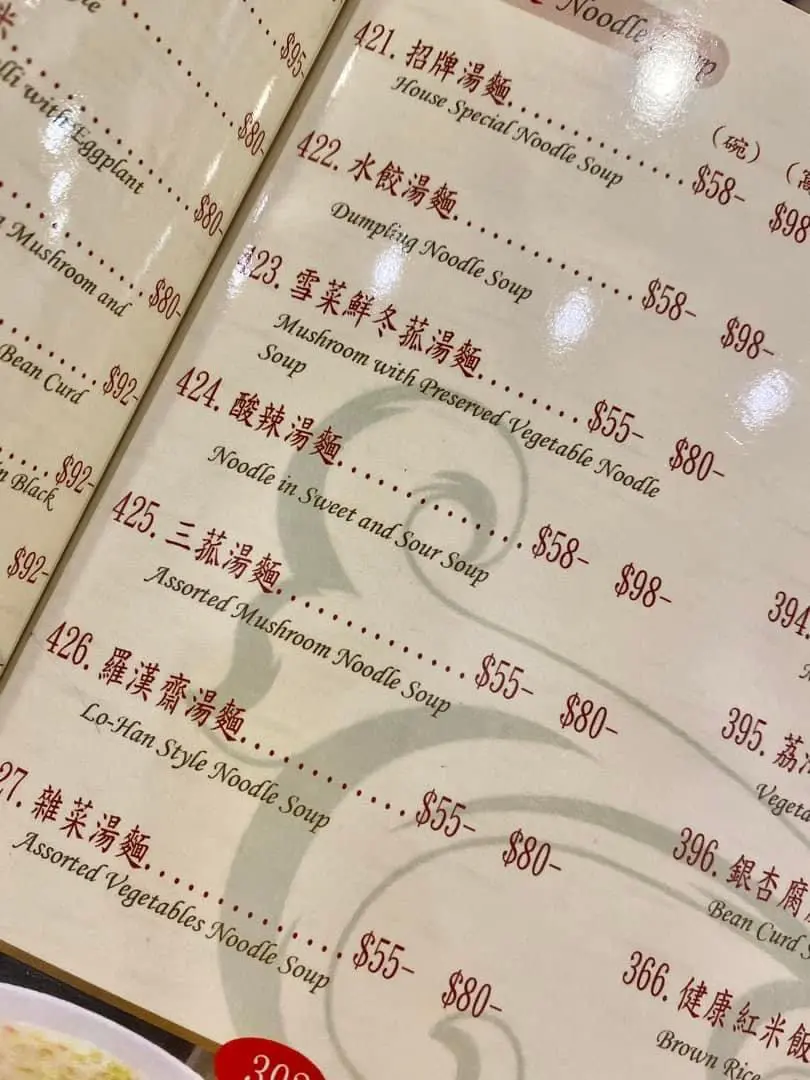 $95-
$80-
with Eggplant
$80-
Mushroom and
$80-
Bean Curd
$92-
$92-
in Black
$92-
Noodle Soup
(碗)
421. 招牌湯麵 $58- $98
House Special Noodle Soup
422. 水餃湯麵 $58- $98-
Dumpling Noodle Soup
423. 雪菜鮮冬菇湯麵 $55- $80-
Mushroom with Preserved Vegetable Noodle
Soup
424. 酸辣湯麵 $58- $98-
Noodle in Sweet and Sour Soup
425. 三菇湯麵 $55- $80-
Assorted Mushroom Noodle Soup
426. 羅漢齋湯麵 $55- $80-
Lo-Han Style Noodle Soup
27. 雜菜湯麵 $55- $80-
Assorted Vegetables Noodle Soup
394.
395. 荔
Vegeta
396. 銀杏腐
Bean Curd
366. 健康紅米飯
Brown Rice